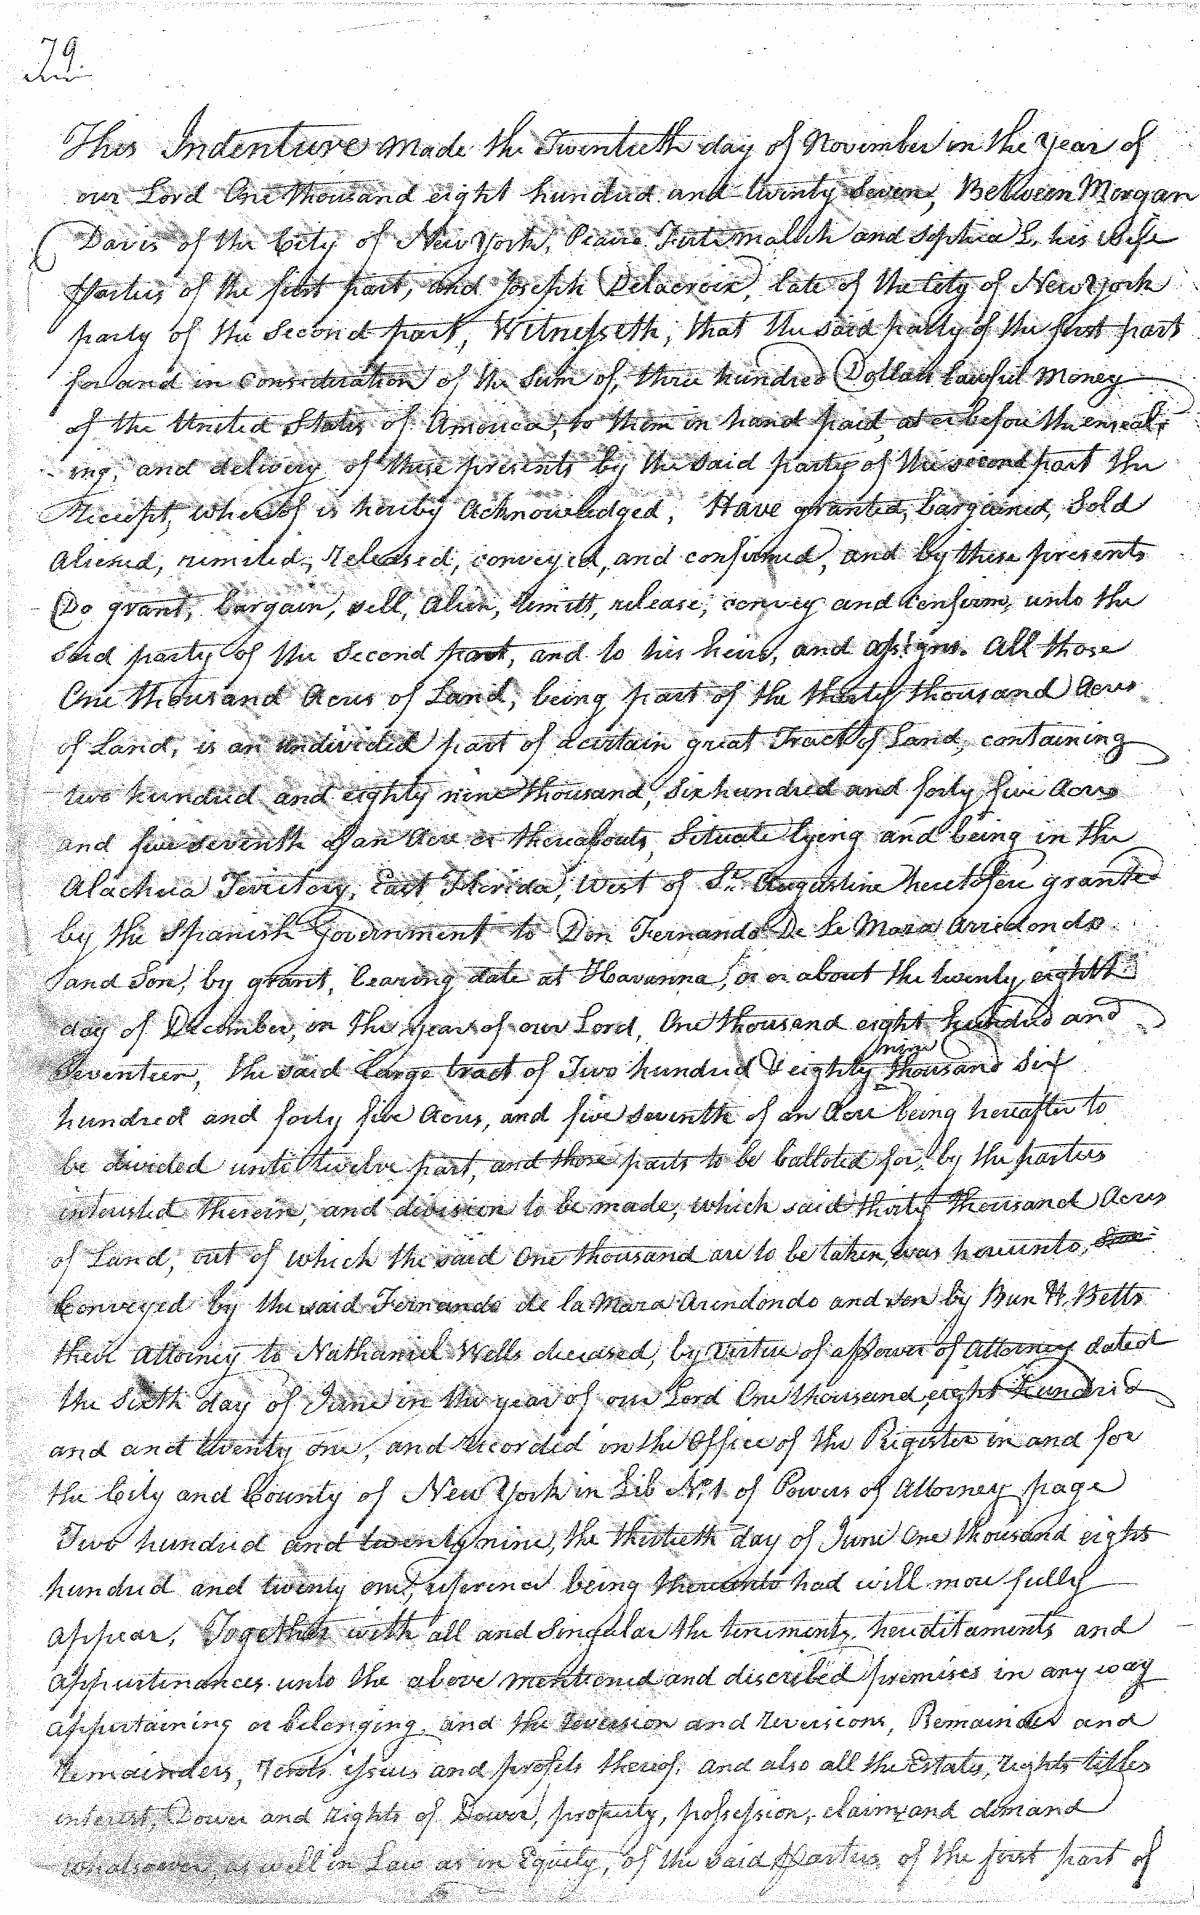 79.
This Indenture made the Twentieth day of November in the Year of
our Lord One thousand eight hundred and twenty Seven, Between Morgan
Davis of the City of New York, and Sophia L. his Wife
Parties of the first part, and Joseph Delacroix, late of the City of New York
party of the Second part, Witnesseth, that the said party of the first part
for and in Consideration of the Sum of, three hundred Dollars lawful Money
of the United States of America, to them in hand paid, at or before the enseal-
ing, and delivery of these presents by the said party of the second part the
Receipt, whereof is hereby Acknowledged, Have granted, bargained, Sold
Aliened, remited, released, conveyed, and confirmed, and by these presents
Do grant, bargain, sell, Alien, remitt, release, convey and Confirm, unto the
said party of the Second part, and to his heirs, and assigns. All those
One thousand Acres of Land, being part of the thirty thousand Acres
of Land, is an undivided part of a certain great Tract of Land, containing
two hundred and eighty nine thousand, Six hundred and forty five Acres
and five seventh of an Acre or thereabouts, Situate lying and being in the
Alachua Territory, East Florida, West of St. Augustine heretofore granted
by the Spanish Government to Don Fernando De Le Maza Arredondo
and Son, by grant, bearing date at Havanna, or about the twenty eightt
day of December, in the year of our Lord, One thousand eight hundred and
Seventeen, the said large tract of Two hundred & eighty nine thousand Six
hundred and forty five Acres, and five seventh of an Acre being hereafter to
be divided unto twelve part, and those parts to be balloted for, by the parties
interested therein, and division to be made, which said thirty thousand Acres
of Land, out of which the said One thousand are to be taken, was hereunto,
Conveyed by the said Fernando de la Maza Arendondo and son by Bun H. Betts
their Attorney to Nathaniel Wells deceased, by virtue of a Power of Attorney dated
the Sixth day of June in the year of our Lord One thousand, eight hundred
and and twenty one, and recorded in the Office of the Register in and for
the City and County of New York in Lib No. 1 of Powers of Attorney page
Two hundred and twenty nine, the thirtieth day of June One thousand eight
hundred and twenty one, reference being thereunto had will more fully
appear, Together with all and Singular the tenements, hereditaments and
appurtinances unto the above mentioned and described premises in any way
appertaining or belonging, and the reversion and reversions, Remainder and
remainders, rents issues and profits thereof, and also all the Estate, rights titles
interest, Dower and rights of Dower, property, possession, claim, and demand
whatsoever, as well in Law as in Equity, of the said Parties of the first part of